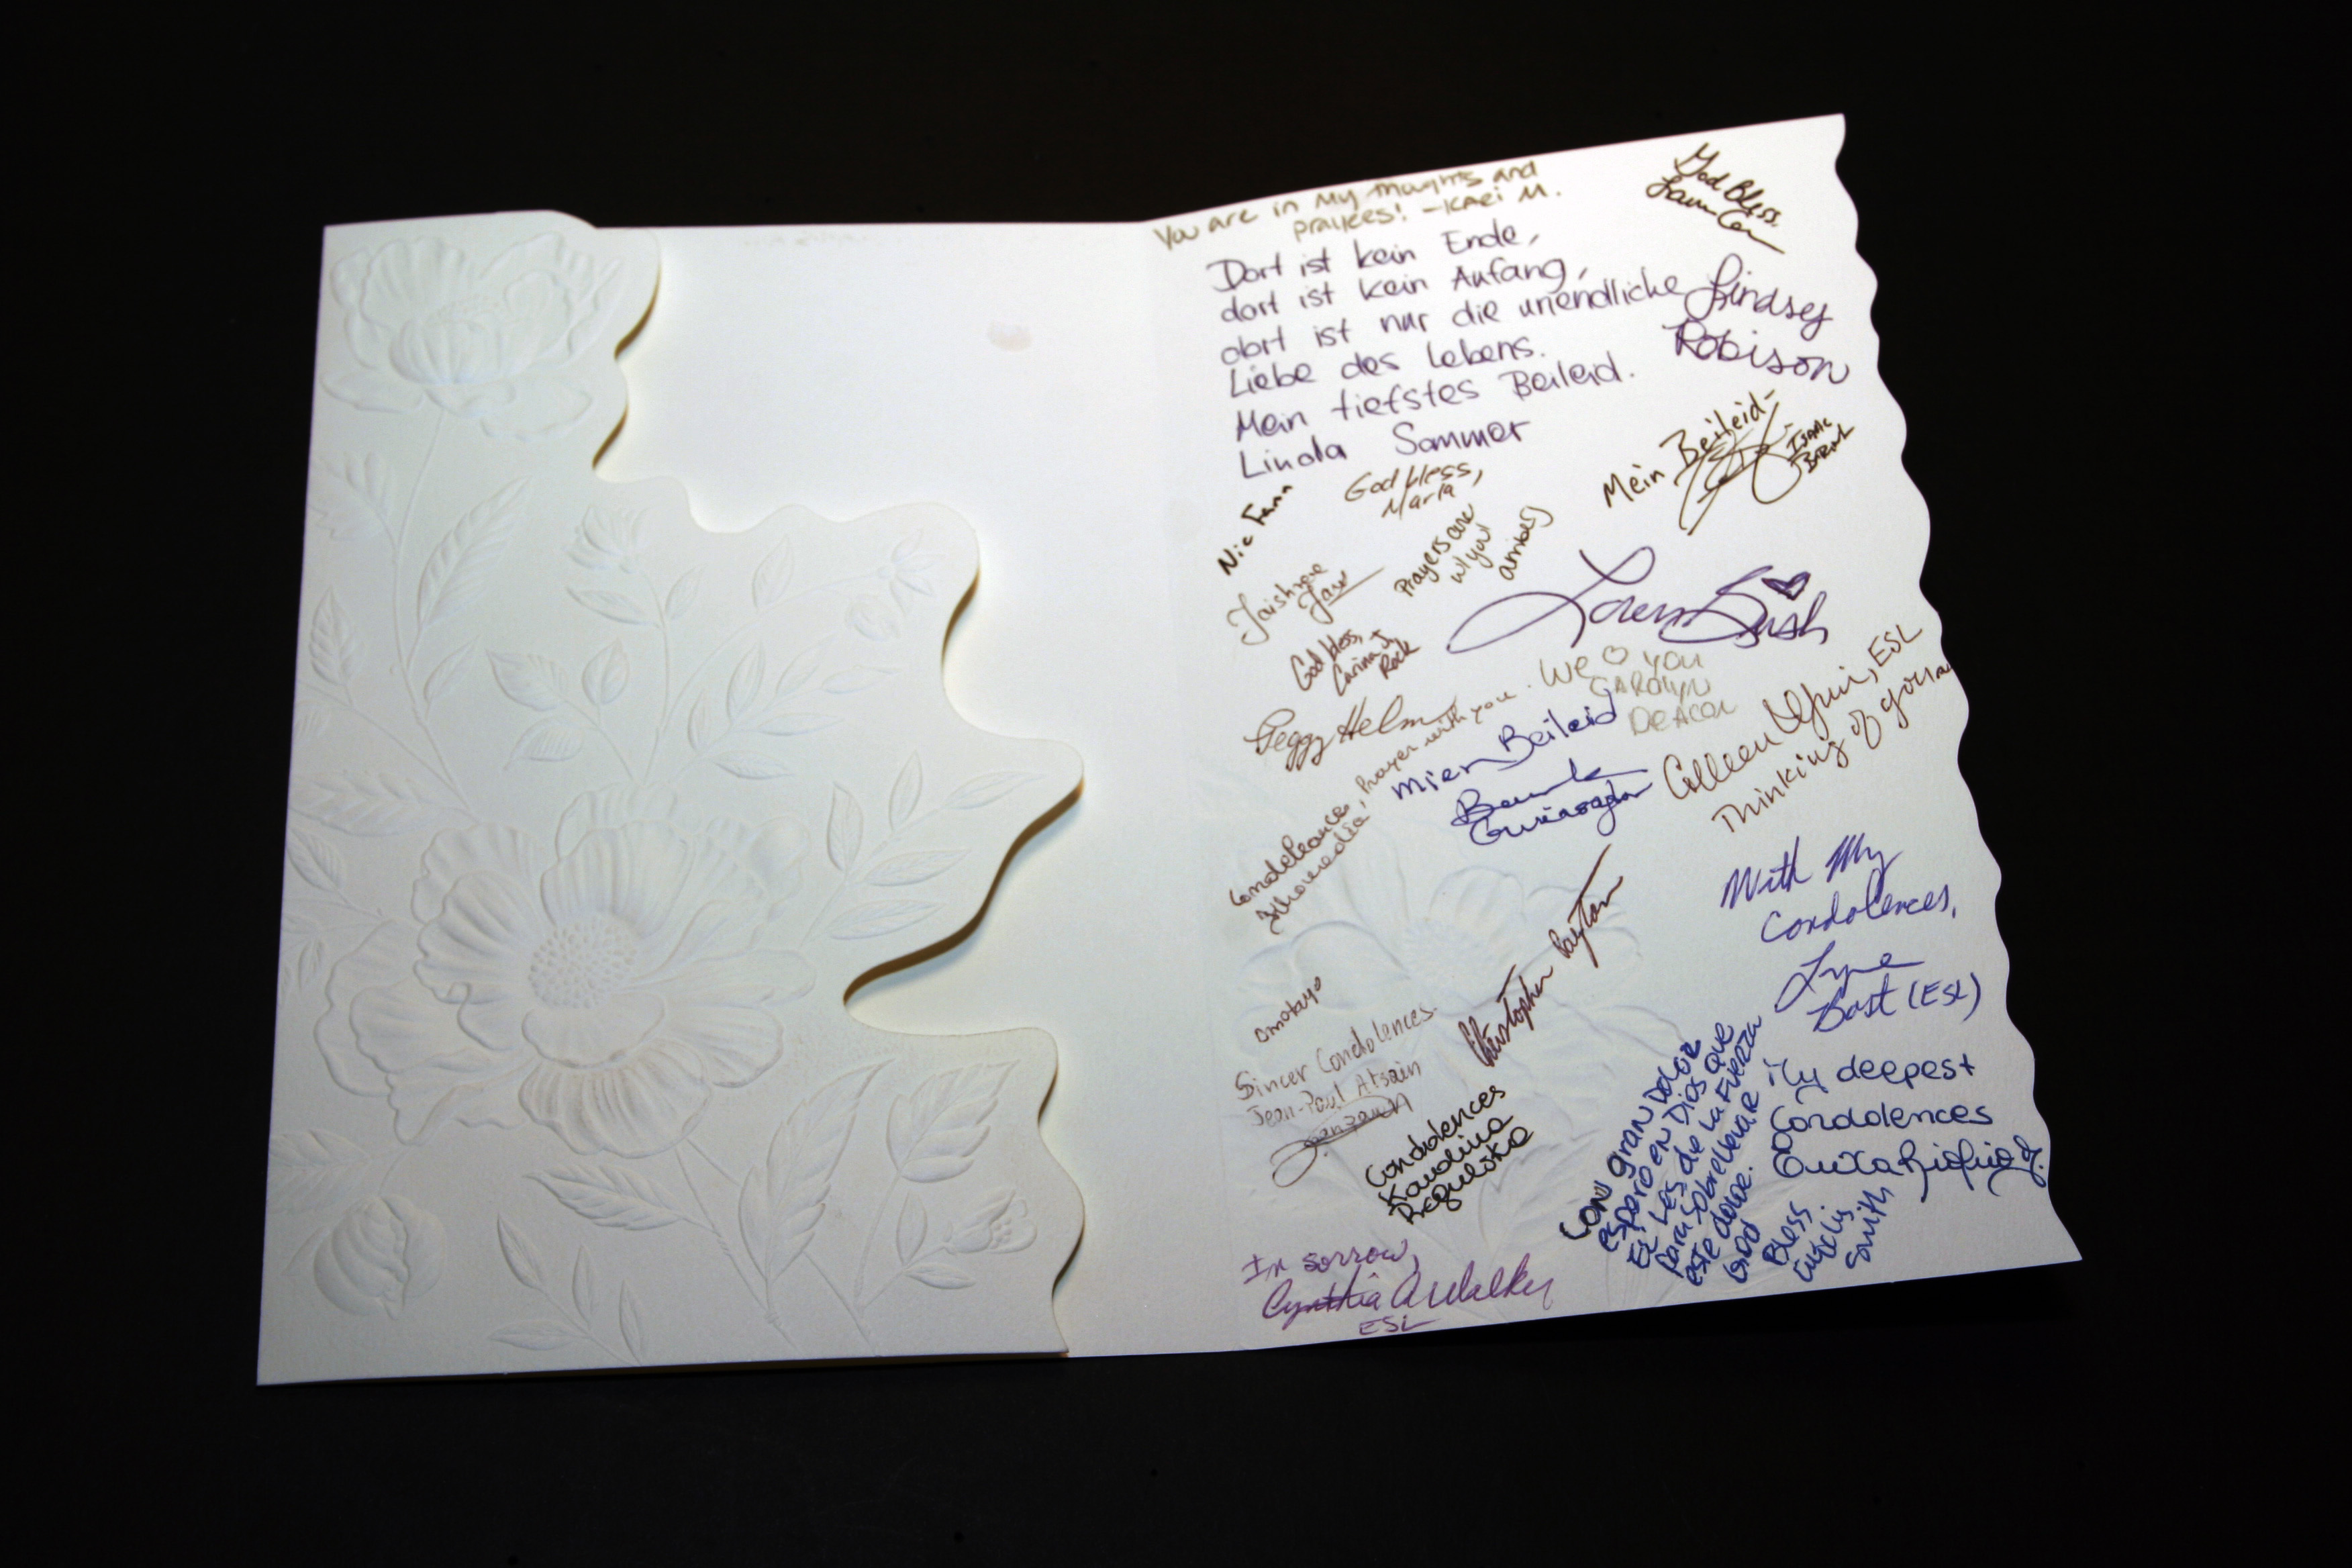 You are in My thoughts and
prayers! - Kari M.
God Bless,
Dort ist kein Ende,
dort ist kein Anfang,
dort ist nur die unendliche
Liebe des Lebens.
Mein tiefstes Beileid.
Linda Sommer
Lindsey
Robison
Mein Beileid-
Isaac
God bless,
Marla
Nic Fann
Prayers are
w/ you
God bless,
Carina J.
Rock
Loren Bush
We ♡ you
Carolyn
Deacon
Peggy Helm
Mien Beileid
Colleen
, ESL
Thinking of you
, Prayer with you.
With My
Condolences,
Bost (ESL)
Christopher Payton
Omotayo
Sincer Condolences.
Jean-Paul Atsain
Condolences
My deepest
Condolences
Con gran Dolor
espero en Dios que
El Les de la Fuerza
para sobrellevar
este dolor.
God
Bless
Smith
In sorrow,
Cynthia A Walker
ESL